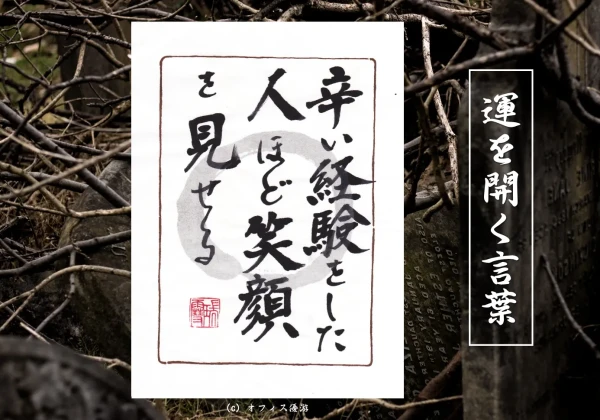 辛い経験をした
人ほど笑顔
を見せる
運を開く言葉
(C) オフィス優游